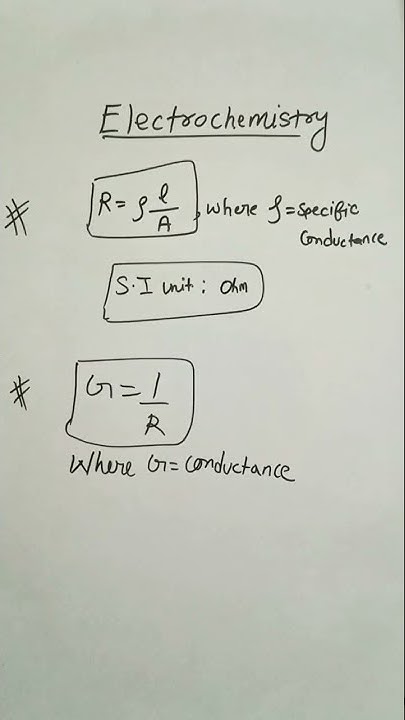 Electrochemistry
# R = ρ l/A, where ρ = specific
conductance
S.I unit : ohm
# G = 1/R
Where G = conductance